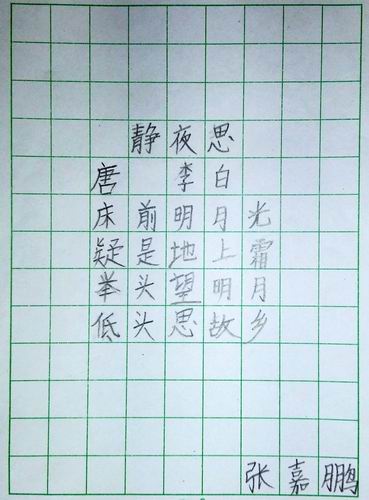 静夜思
唐 李白
床前明月光
疑是地上霜
举头望明月
低头思故乡
张嘉鹏